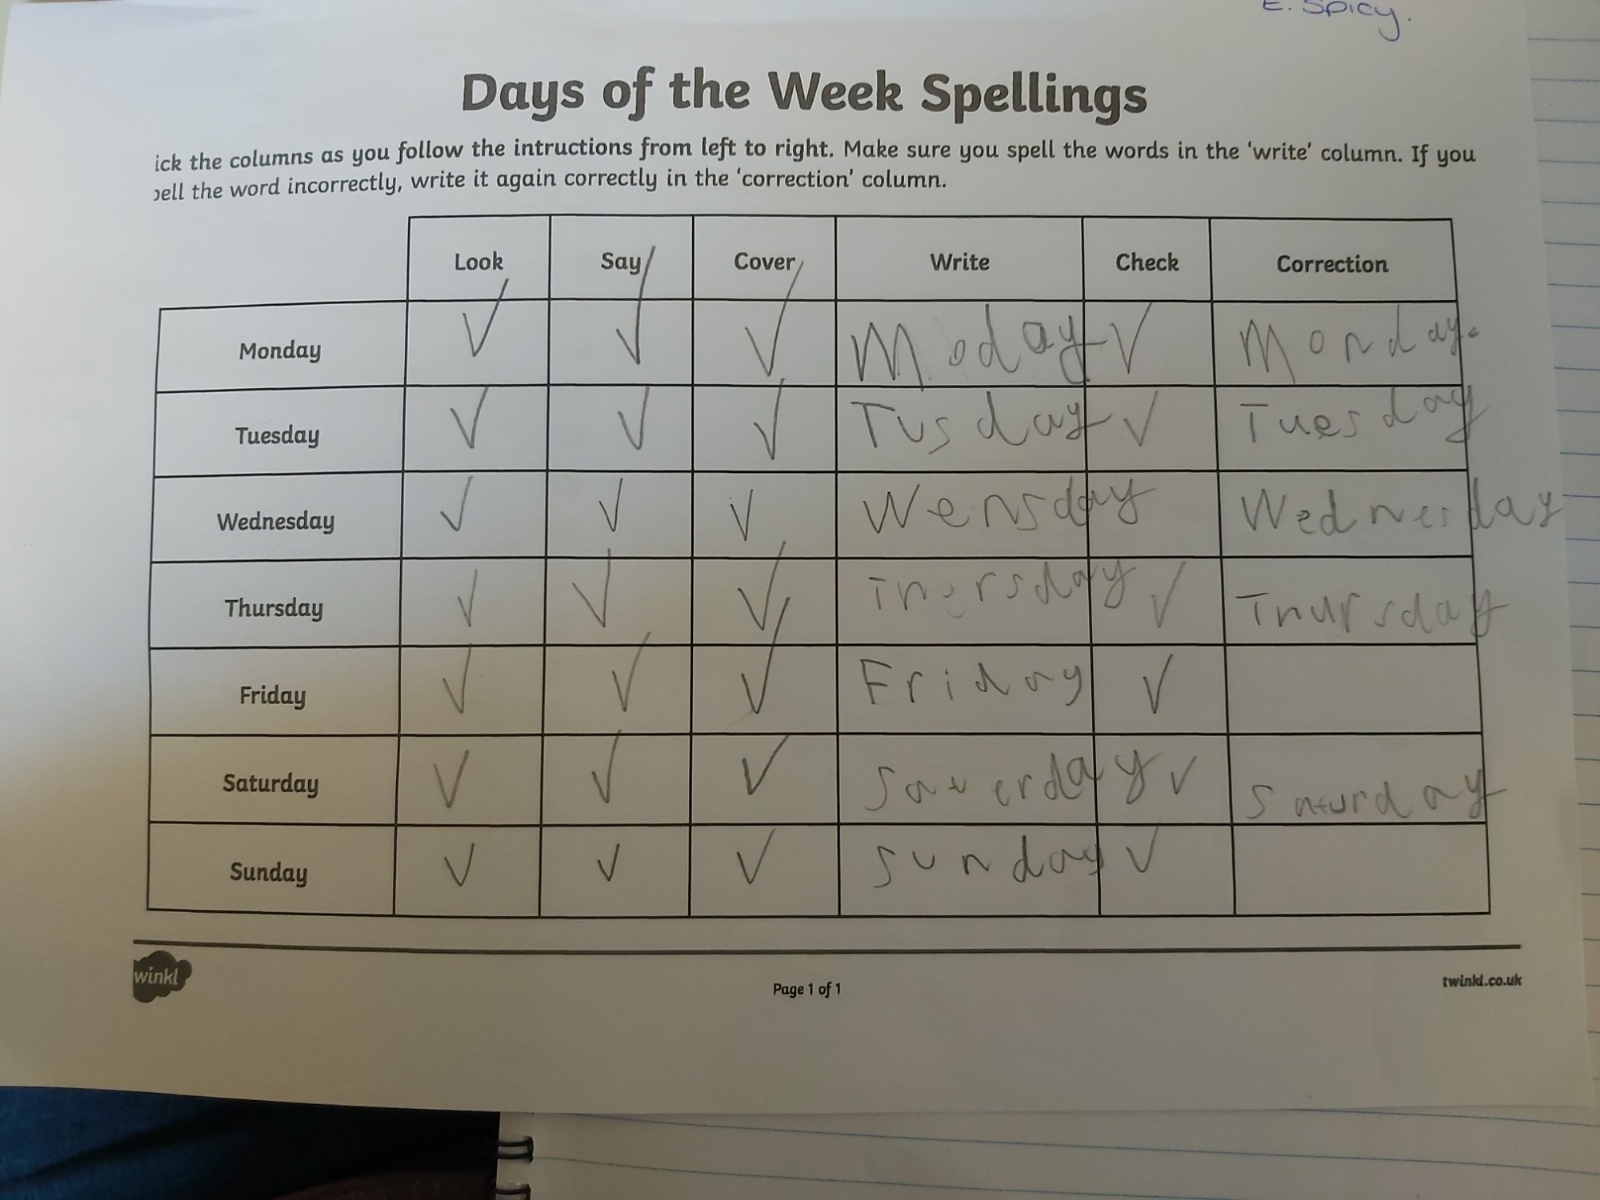 E. Spicy.
Days of the Week Spellings
ick the columns as you follow the intructions from left to right. Make sure you spell the words in the 'write' column. If you
pell the word incorrectly, write it again correctly in the 'correction' column.
Look Say Cover Write Check Correction
Monday ✓ ✓ ✓ Moday ✓ Monday.
Tuesday ✓ ✓ ✓ Tusday ✓ Tuesday
Wednesday ✓ ✓ ✓ Wensday Wednesday
Thursday ✓ ✓ ✓ ✓ Thursday
Friday ✓ ✓ ✓ Friday ✓
Saturday ✓ ✓ ✓ Saterday ✓ Saturday
Sunday ✓ ✓ ✓ Sunday ✓
winkl
Page 1 of 1
twinkl.co.uk